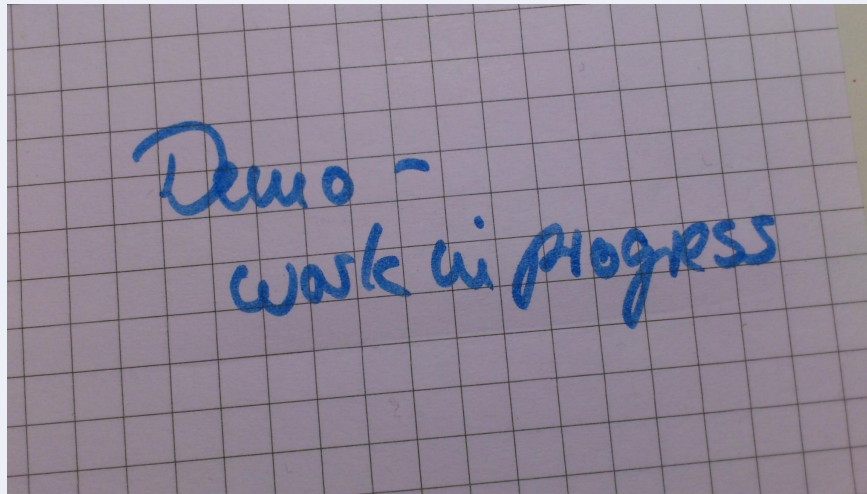 Demo -
work in progress